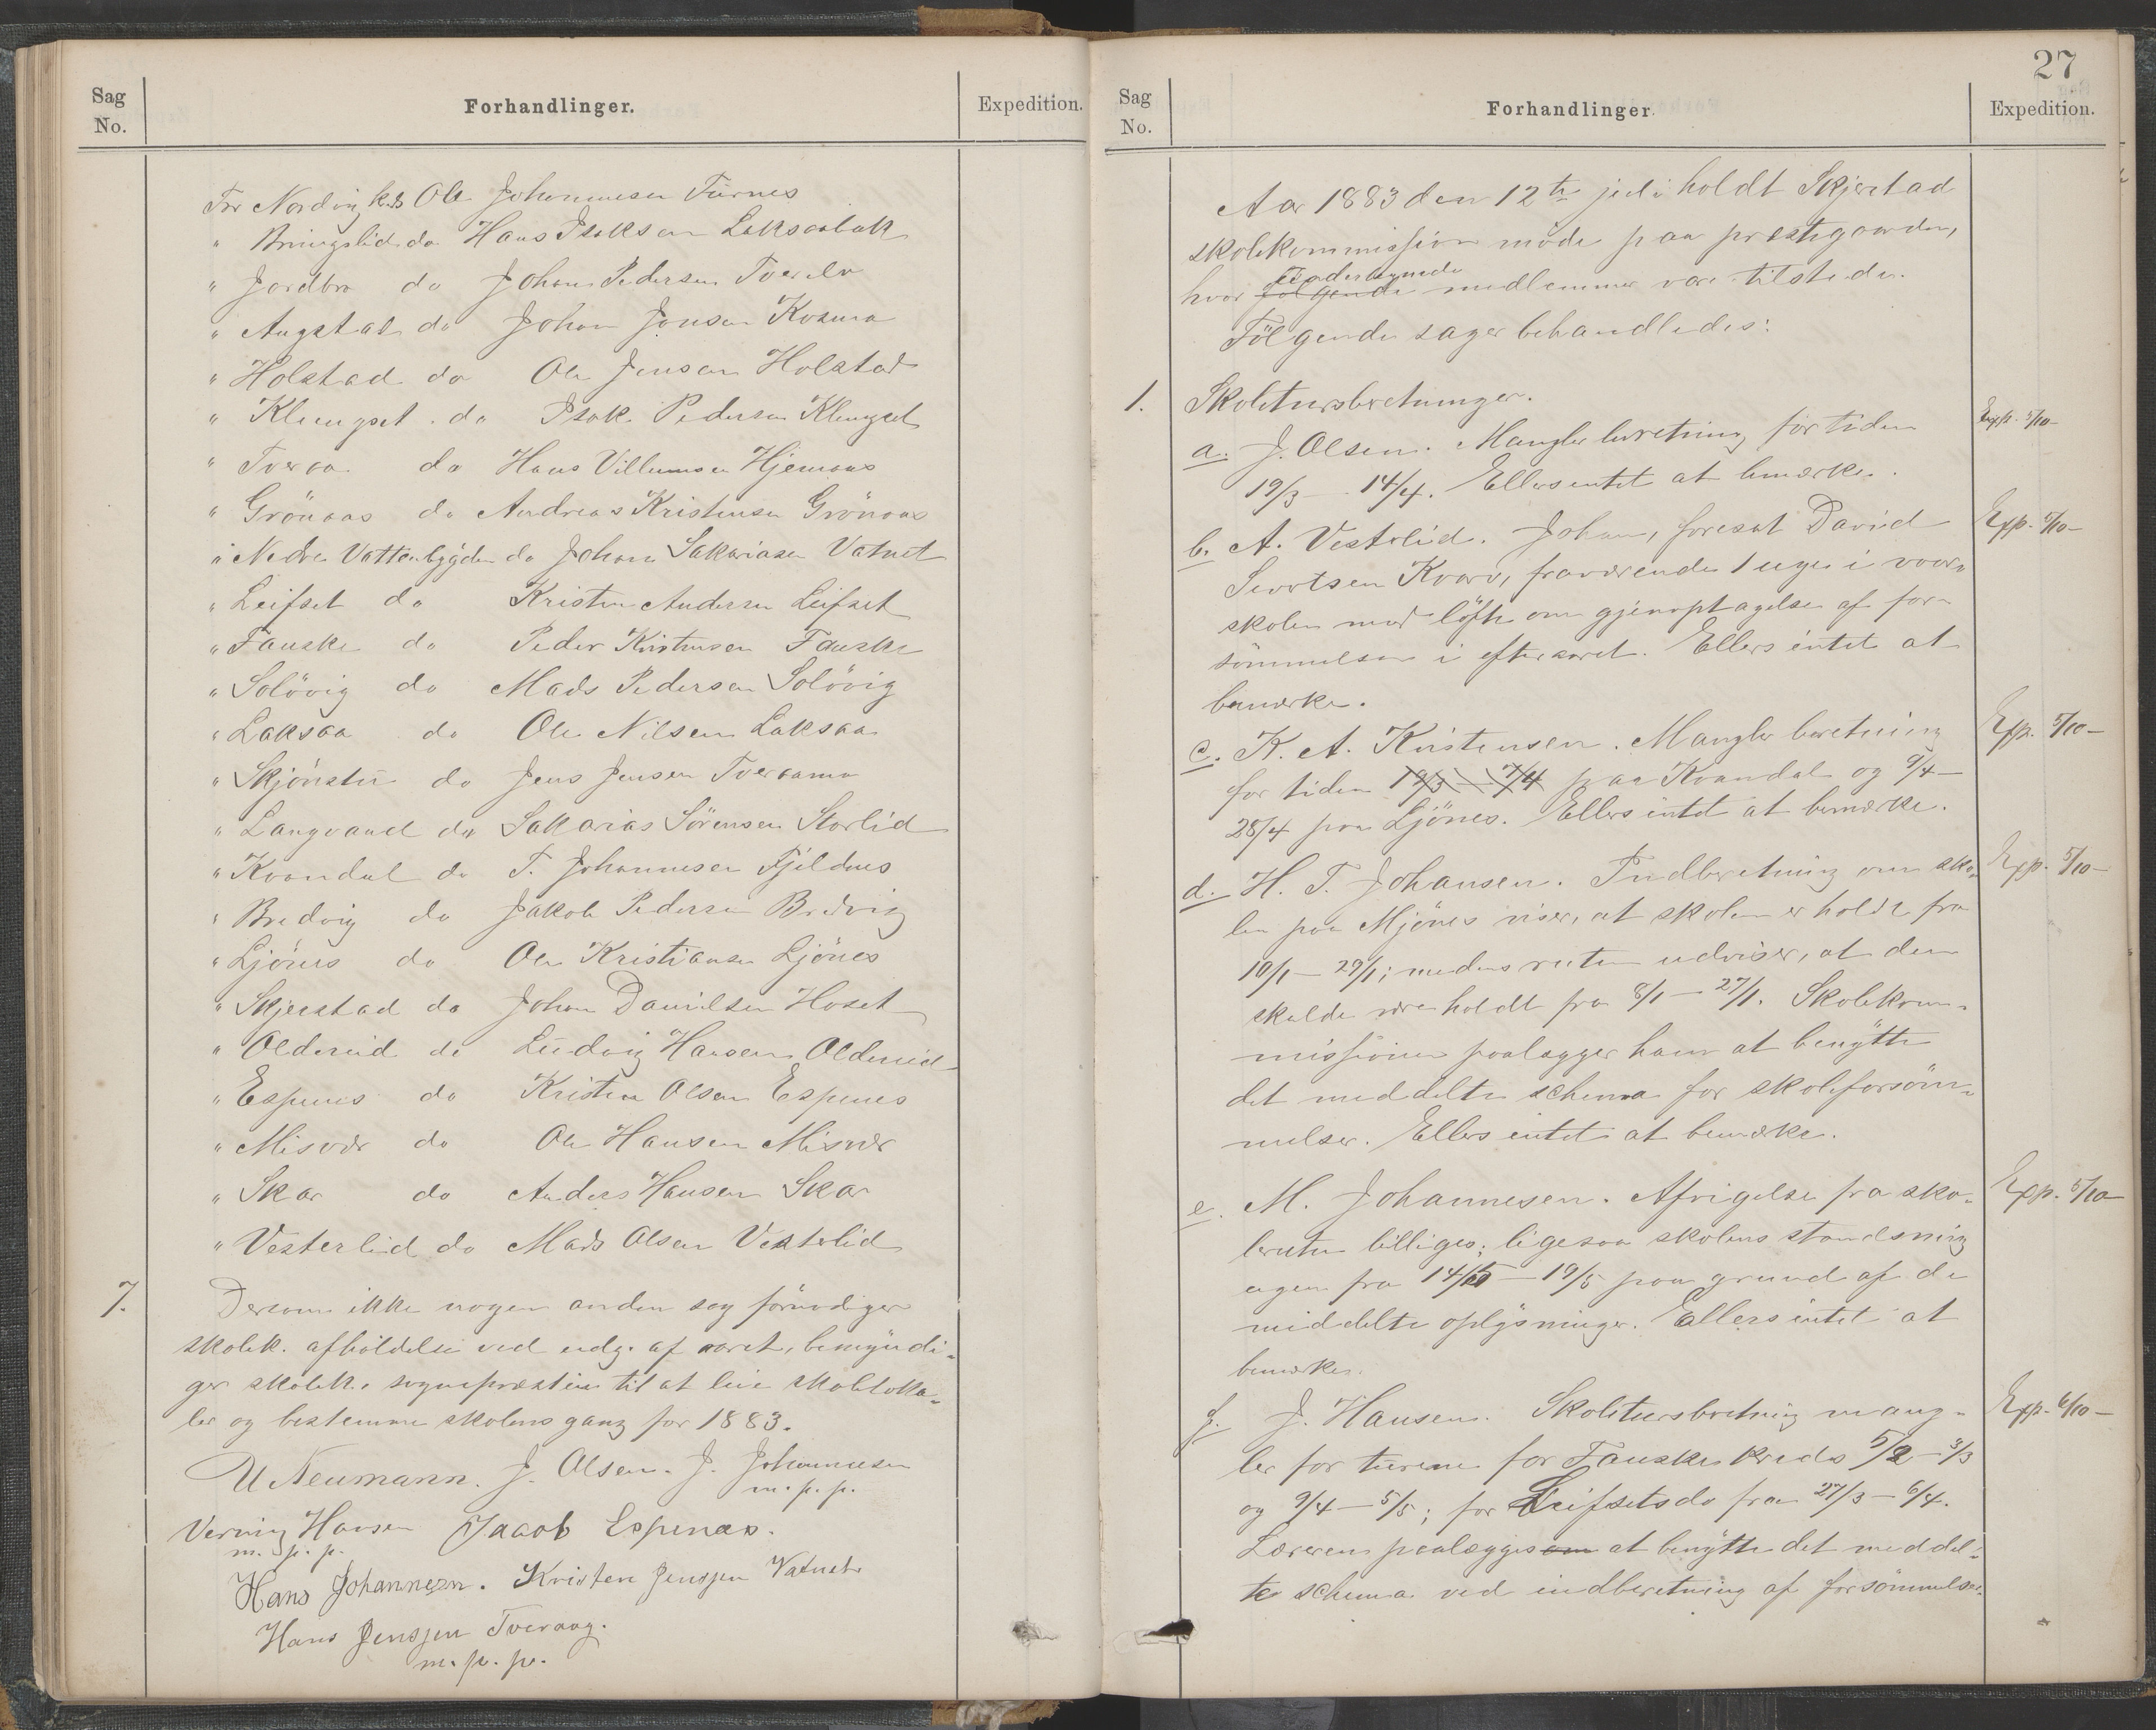 Sag No. Forhandlinger. Expedition.
For Nordvig kds Ole Johannesen Furnes
" Bringslid do Hans Isaksen Laksaabak
" Jordbro do Johan Pedersen Tverelv
" Augstad do Johan Jonsen Kosmo
" Holstad do Ole Jensen Holstad
" Klungset do Isak Pedersen Klungset
" Tveraa do Hans Villumsen Hjemaas
" Grönaas do Andreas Kristensen Grönaas
" Nedre Vattenbygden do Johan Sakariasen Vatnet
" Leifset do Kristen Andersen Leifset
" Fauske do Peder Kristensen Fauske
" Solövig do Mads Pedersen Solövig
" Laksaa do Ole Nilsen Laksaa
" Skjönstu do Jens Jensen Tveraamo
" Langvand do Sakarias Sörensen Storlid
" Kvandal do T. Johannesen Fjeldnes
" Bredvig do Jakob Pedersen Bredvig
" Ljönes do Ole Kristiansen Ljönes
" Skjerstad do Johan Danielsen Hoset
" Oldereid do Ludvig Hansen Oldereid
" Espenes do Kristen Olsen Espenes
" Misvær do Ole Hansen Misvær
" Skar do Anders Hansen Skar
" Vesterlid do Mads Olsen Vesterlid
7. Dersom ikke nogen anden sag fornödiger
skolek. afholdelse ved udg. af aaret, bemyndi-
ger skolek. sognepræsten til at leie skoleloka-
ler og bestemme skolens gang for 1883.
U Neumann. J. Olsen. J. Johannesen
m. p. p.
Verning Hansen Jacob Espenæs.
m. p. p.
Hans Johannesn. Kristen Jenssen Vatnet
Hans Jenssen Tveraag.
m. p. p.
27
Sag No. Forhandlinger. Expedition.
Aar 1883 den 12te juli holdt Skjerstad
skolekommission möde paa prestegaarden,
undertegnede
hvor fölgende medlemmer var tilstede.
Fölgende sager behandledes:
1. Skoletursberetninger.
a. J. Olsen. Mangler beretning for tiden Exp. 5/10
19/3 – 14/4. Ellers intet at bemærke.
b. A. Vestrlid. Johan, foresat David Exp. 5/10
Sivertsen Kvarv, fraværende 1 uge i vaar-
skolen med löfte om gjenoptagelse af for-
sömmelsen i efteraaret. Ellers intet at
bemærke.
c. K. A. Kristensen. Mangler beretning Exp. 5/10
for tiden 19/3 – 7/4 paa Kvandal og 9/4 –
28/4 paa Ljönes. Ellers intet at bemærke.
d. H. T. Johansen. Indberetning om sko- Exp. 5/10
len paa Mjönes viser, at skolen er holdt fra
10/1 – 29/1; medens ruten udviser, at den
skulde være holdt fra 8/1 – 27/1. Skolekom-
missionen paalægger ham at benytte
det meddelte schema for skoleforsöm-
melser. Ellers intet at bemærke.
e. M. Johannesen. Afvigelse fra sko- Exp. 5/10
leruten billiges; ligesaa skolens standsning
ugen fra 14/5 – 19/5 paa grund af de
meddelte oplysninger. Ellers intet at
bemærke.
f. J. Hansen. Skoletursberetning mang- Exp. 6/10
ler for turene for Fauske kreds 5/2 – 3/3
og 9/4 – 5/5; for Leifsets do fra 27/3 – 6/4.
Læreren paalægges om at benytte det meddel-
te schema ved indberetning af forsömmelser.